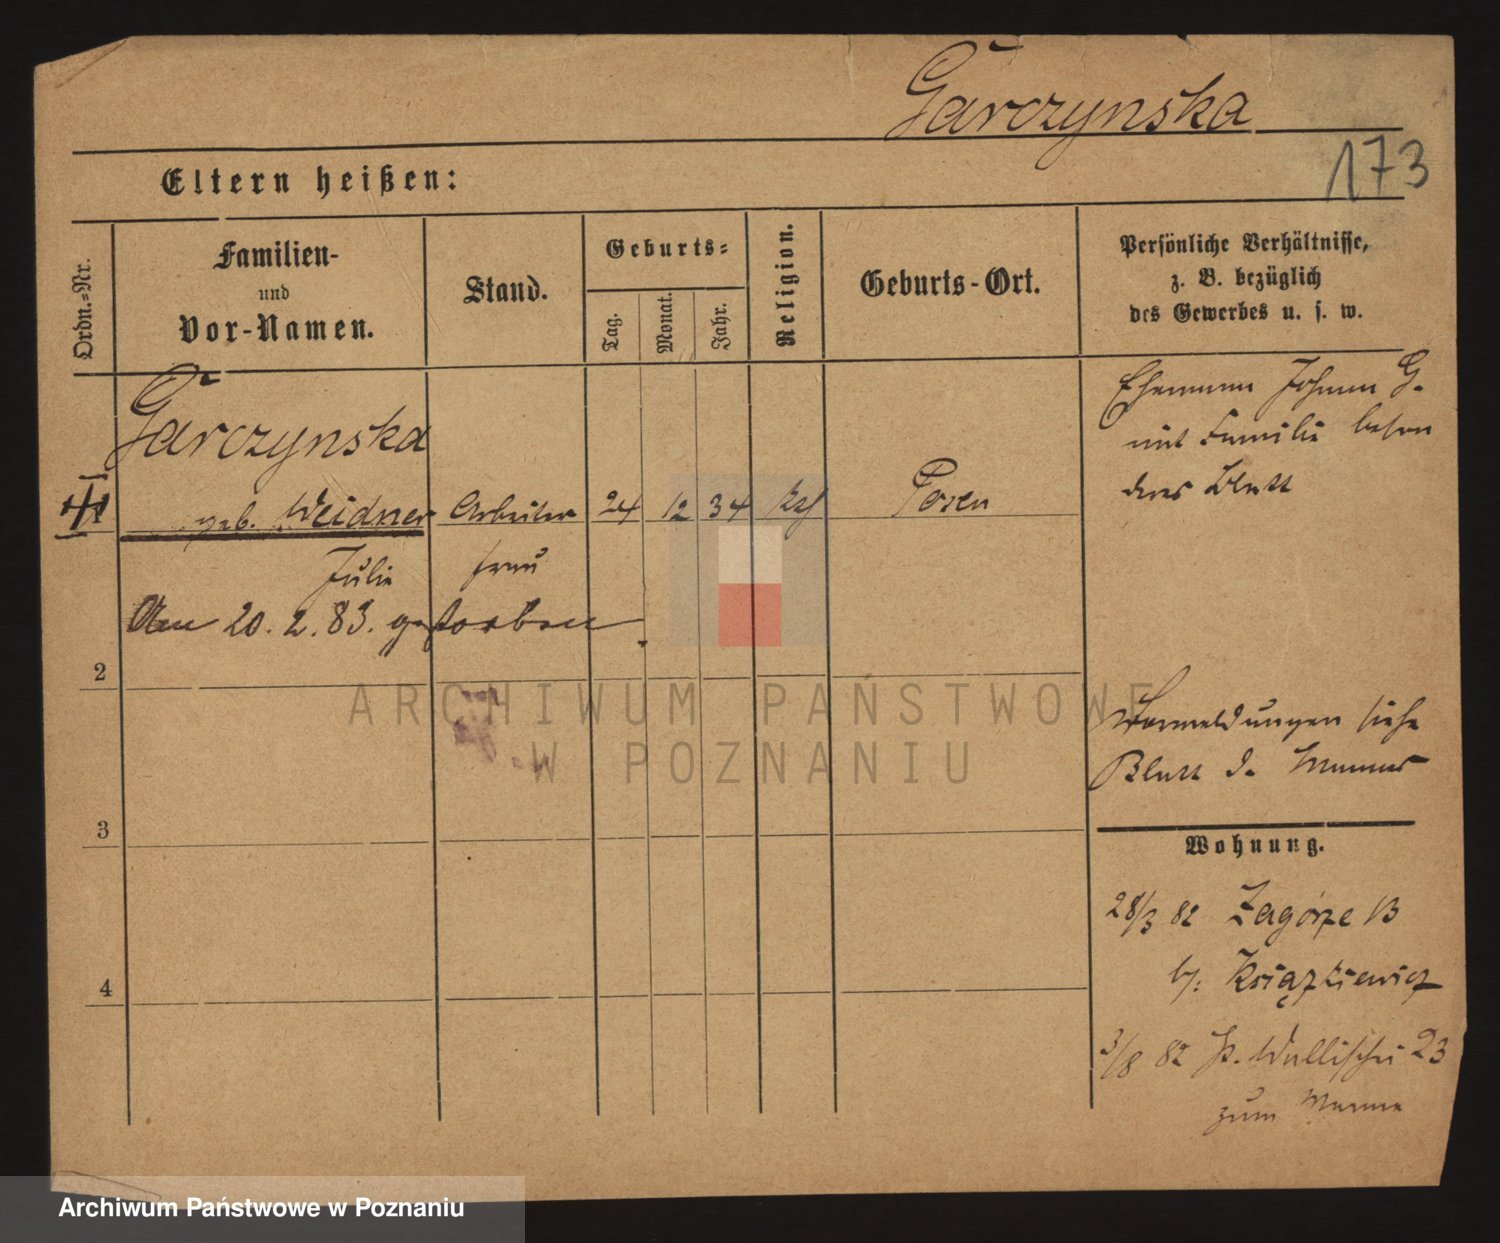 Garczynska
173
Eltern heißen:
Ordn.=Nr.
Familien-
und
Vor-Namen.
Stand.
Geburts=
Tag.
Monat.
Jahr.
Religion.
Geburts-Ort.
Persönliche Verhältnisse,
z. B. bezüglich
des Gewerbes u. s. w.
Garczynska
geb. Weidner Arbeiter 24 12 34 kth Posen
Julie frau
Am 20. 2. 83. gestorben
Ehemann Johann G.
mit Familie beson
deres Blatt
2
3
4
Vormeldungen siehe
Blatt d. Mannes
Wohnung.
28/3 82 Zagórze 13
b/. Książkiewicz
3/8 82 Wallischei 23
zum Manne
ARCHIWUM PAŃSTWOWE
W POZNANIU
Archiwum Państwowe w Poznaniu